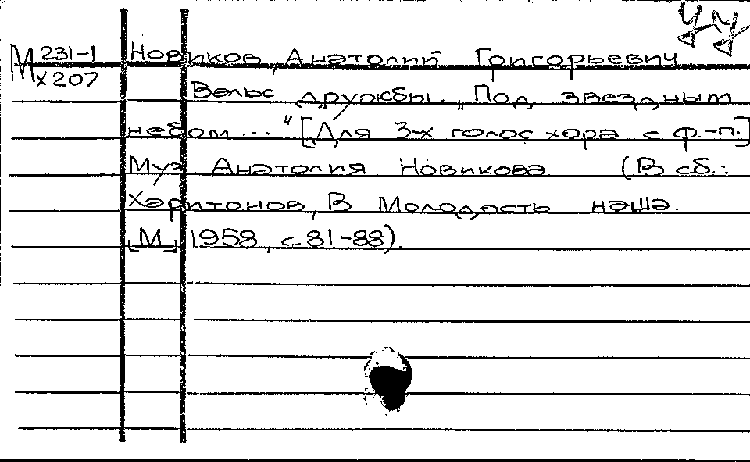 УУ
М 231-1 Новиков, Анатолий Григорьевич
х 207
Вальс дружбы. "Под звездным
небом..." [Для 3-х голос хора с ф.-п.]
Муз Анатолия Новикова. (В сб.:
Харитонов, В Молодость наша.
[М] 1958, с.81-88).